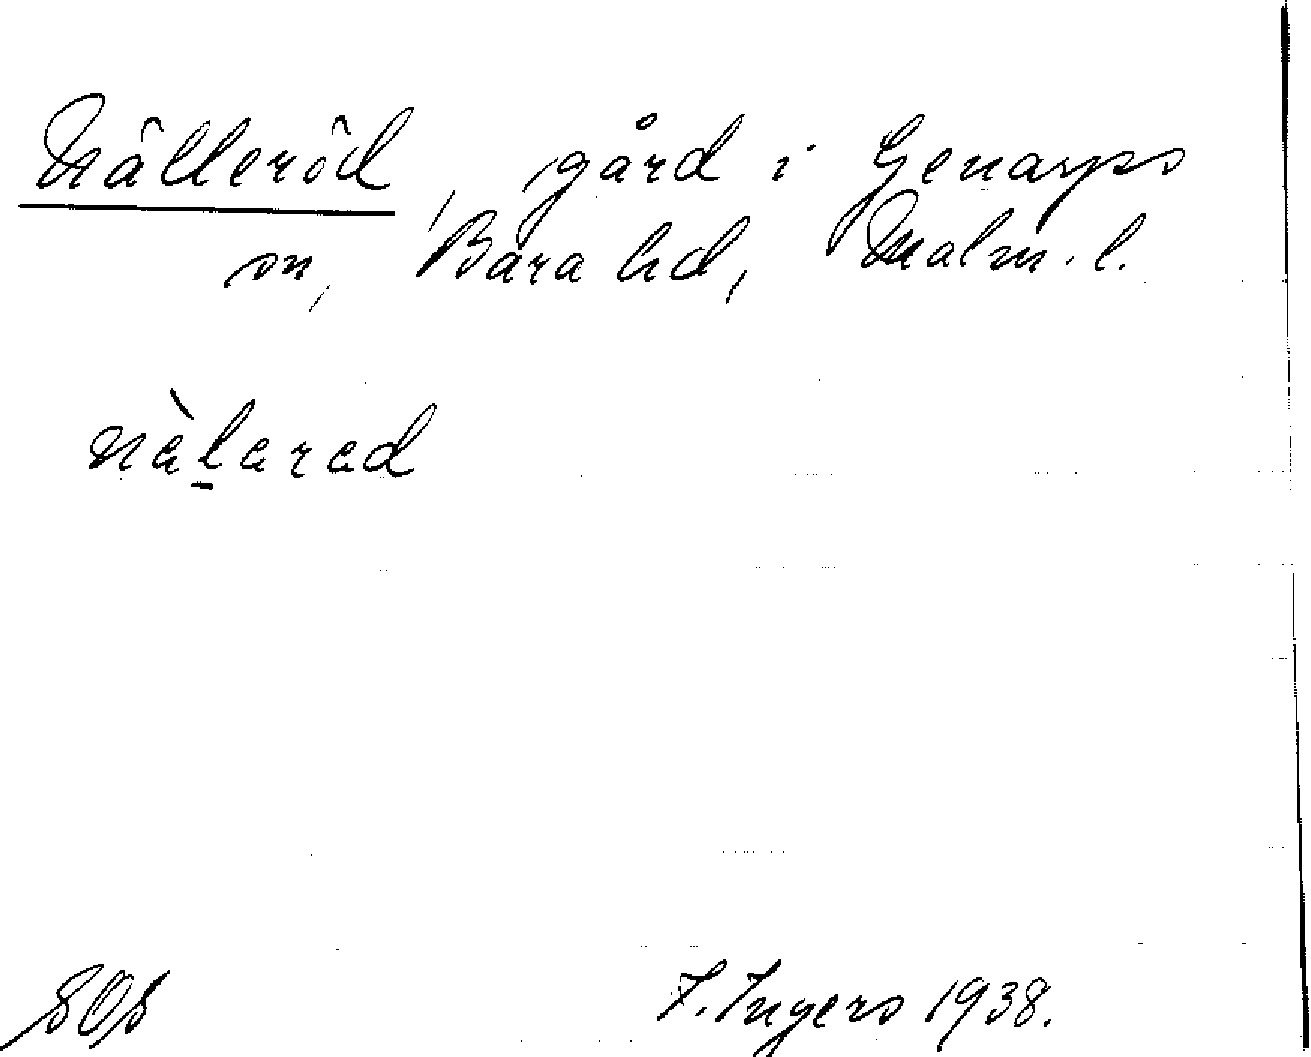 Nälleröd, gård i Genarps
sn, Bara hd, Malm. l.
nàlarad
SOS
I. Ingers 1938.